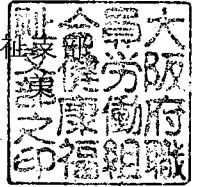 大阪府職
員労働組
合健康福
祉支部之印